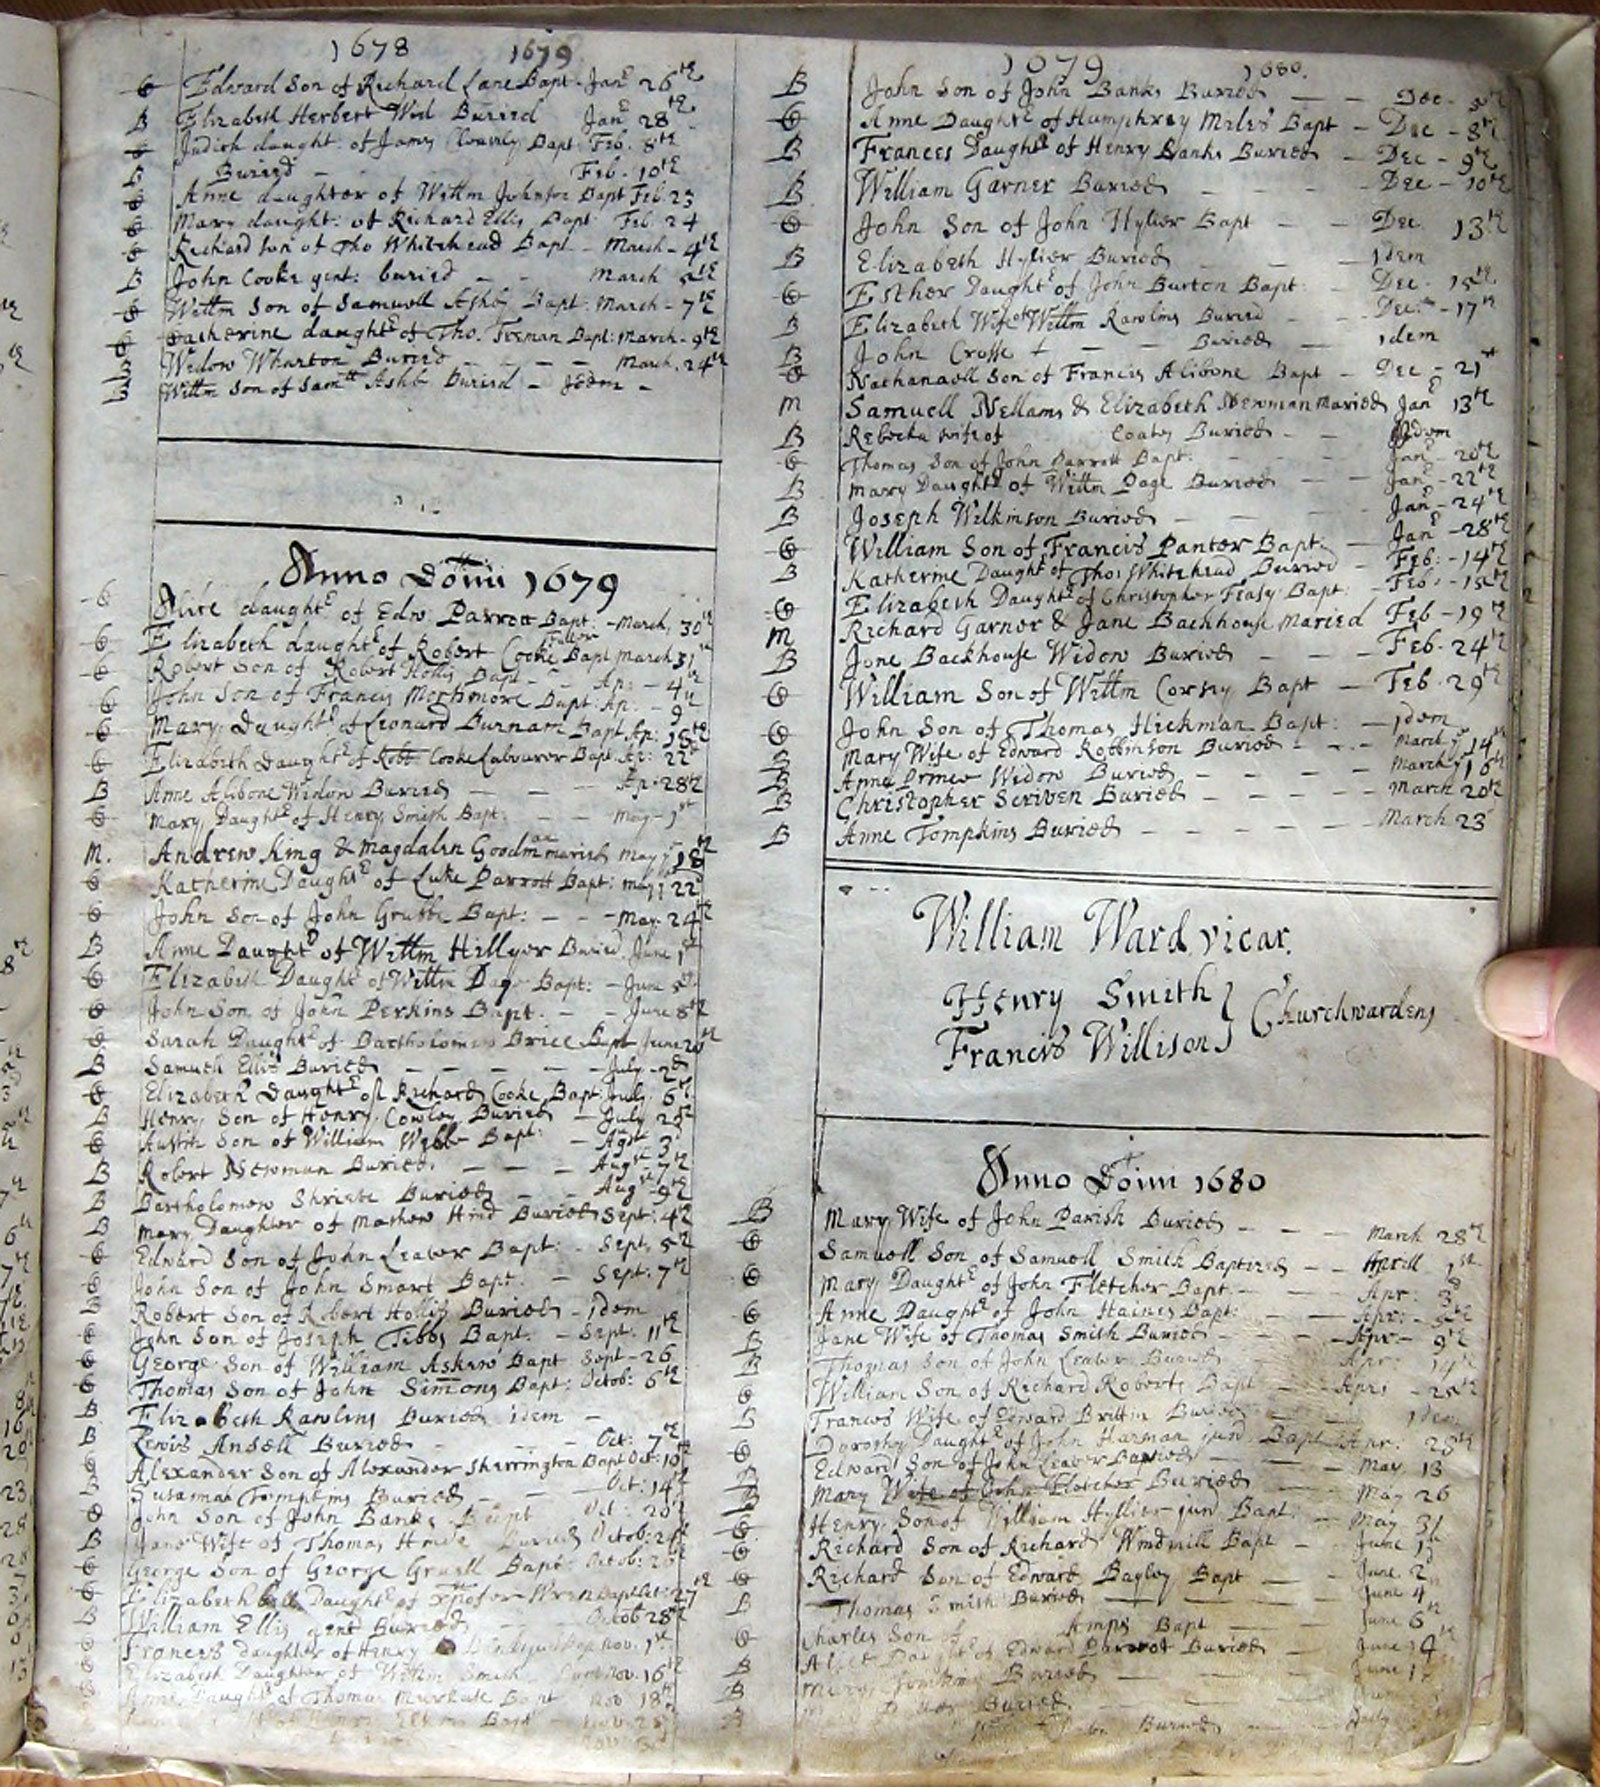 1678 1679
Edward Son of Richard Lane Bapt - Jan: 26th
B Elizabeth Herbert Wid Buried Jan: 28th
Judith daught: of James Bapt: Feb. 8th
B Buried - Feb. 10th
Anne daughter of Willm Johnson Bapt Feb. 23
Mary daught: of Richard Ellis Bapt: Feb. 24
Richard Son of Tho Whitehead Bapt - March - 4th
B John Cooke gent: buried - - March 5th
Willm Son of Samuell Ashby Bapt: March - 7th
Catherine daught: of Tho. Freman Bapt: March - 9th
B Widow Wharton Buried - - - - March. 24th
B Willm Son of Samll Ashby Buried - Idem -
Anno Domi 1679
Alice daught: of Edw Parrott Bapt: - March, 30th
Elizabeth daught: of Robert Cooke Bapt March 31
Robert Son of Robert Hollis Bapt - - Ap: - 4th
John Son of Francis Bapt: Ap: - 9
Mary Daught: of Leonard Burnam Bapt. Ap: 15th
Elizabeth Daught: of Robt Cooke Labourer Bapt: Ap: 22
B Anne Alibone Widow Buried - - - Ap: 28th
Mary Daught: of Henry Smith Bapt: - - May - 1st
M. Andrew King & Magdalen Goodman maried May 18th
Katherine Daught: of Luke Parrott Bapt: May 22
John Son of John Grubbe Bapt: - - May. 24th
B Anne Daught: of Willm Hillyer Buried. June 1st
Elizabeth Daught: of Willm Page Bapt: - June 5th
John Son of John Perkins Bapt. - - June 8th
Sarah Daught: of Bartholomew Brice Bapt June 20th
B Samuell Ellis Buried - - - - July - 2d
Elizabeth Daught: of Richard Cooke Bapt: July. 6th
B Henry Son of Henry Cowley Buried - July 25th
Austin Son of William Webbe Bapt: - Agst 3d
B Robert Newman Buried. - - - Augst 7th
B Bartholomew Buried - - Augst 9th
B Mary Daughter of Mathew Hind Buried Sept: 4th
Edward Son of John Leaver Bapt: - Sept. 5th
John Son of John Smart Bapt. - Sept. 7th
B Robert Son of Robert Hollis Buried - idem
John Son of Joseph Tibbs Bapt: - Sept: 11th
George Son of William Askew Bapt Sept - 26
Thomas Son of John Simmons Bapt: Octob: 6th
B Elizabeth Rawlins Buried idem -
B Lewis Ansell Buried - - - Oct: 7th
Alexander Son of Alexander Sherrington Bapt Oct: 10th
B Susannah Tompkins Buried - - - Oct: 14th
John Son of John Banks Bapt Oct: 20
B Jane Wife of Thomas Buried Octob:
George Son of George Gruell Bapt: Octob:
Elizabeth Daught: of Xpofer Wren Bapt Oct: 27th
B William Ellis gent Buried - - - Octob 28th
Francis Daughter of Henry Nov. 1st
Elizabeth Daughter of Willm Smith Bapt Nov. 16th
Anne Daught: of Thomas Bapt Nov 18th
Bapt - Nov.
1679 1680.
B John Son of John Banks Buried - - Dec - 5th
Anne Daught: of Humphrey Miles Bapt - Dec - 8th
B Frances Daught: of Henry Banks Buried - Dec - 9th
B William Garner Buried - - - - Dec - 10th
John Son of John Hylier Bapt - - Dec 13th
B Elizabeth Hylier Buried - - - idem
Esther Daught: of John Burton Bapt: - Dec - 15th
B Elizabeth Wife of Willm Rawlins Buried - - Dec: - 17th
B John Crosse + - - Buried - - idem
Nathanaell Son of Francis Alibone Bapt - Dec - 21st
M Samuell Nellams & Elizabeth Newman Maried Jan: 13th
B Rebecka wife of Coates Buried - - Idem
Thomas Son of John Parrott Bapt: - - - Jan: - 20th
B Mary Daught: of Willm Page Buried - - Jan: - 22th
B Joseph Wilkinson Buried - - - Jan: - 24th
William Son of Francis Panter Bapt: - Jan: - 28th
B Katherine Daught: of Tho: Whitehead Buried - Feb: - 14th
Elizabeth Daught: of Christopher Feasy Bapt: - Feb: - 15th
M Richard Garner & Jane Backhouse Maried Feb - 19th
B Jone Backhouse Widow Buried - - - Feb. 24th
William Son of Willm Corsey Bapt - Feb. 29th
John Son of Thomas Hickman Bapt: - idem
B Mary Wife of Edward Robbinson Buried - - - March ye 14th
B Anne Widow Buried - - - March ye 16th
B Christopher Scriven Buried - - - - March 20th
B Anne Tompkins Buried - - - - - March 23
William Ward vicar.
Henry Smith
Francis Willison } Churchwardens
Anno Domi 1680
B Mary Wife of John Parish Buried - - - March 28th
Samuell Son of Samuell Smith Baptized - - Aprill 1st
Mary Daught: of John Fletcher Bapt. - - - Apr: 3d
Anne Daught: of John Haines Bapt: - - Apr: - 5th
B Jane Wife of Thomas Smith Buried - - - Apr - 9th
B Thomas Son of John Leaver Buried - - - Apr: 14th
William Son of Richard Roberts Bapt - - Apr: - 25th
B Frances Wife of Edward Brittin Buried - - idem
Dorothy Daught: of John Harman jund. Bapt Apr: 25th
Edward Son of John Leaver - - May. 13
B Mary Wife of John Fletcher Buried - - May 26
Henry Son of William Hyllier jund Bapt: - May 31
Richard Son of Richard Windmill Bapt - June 1st
Richard Son of Edward Bagley Bapt - - June 2
B Thomas Smith Buried - - - June 4
Charles Son of Amps Bapt - - June 6th
B Alice Daught: of Edward Parrot Buried - June 14
B Mary Buried - - June
B Buried - -
Buried - - July